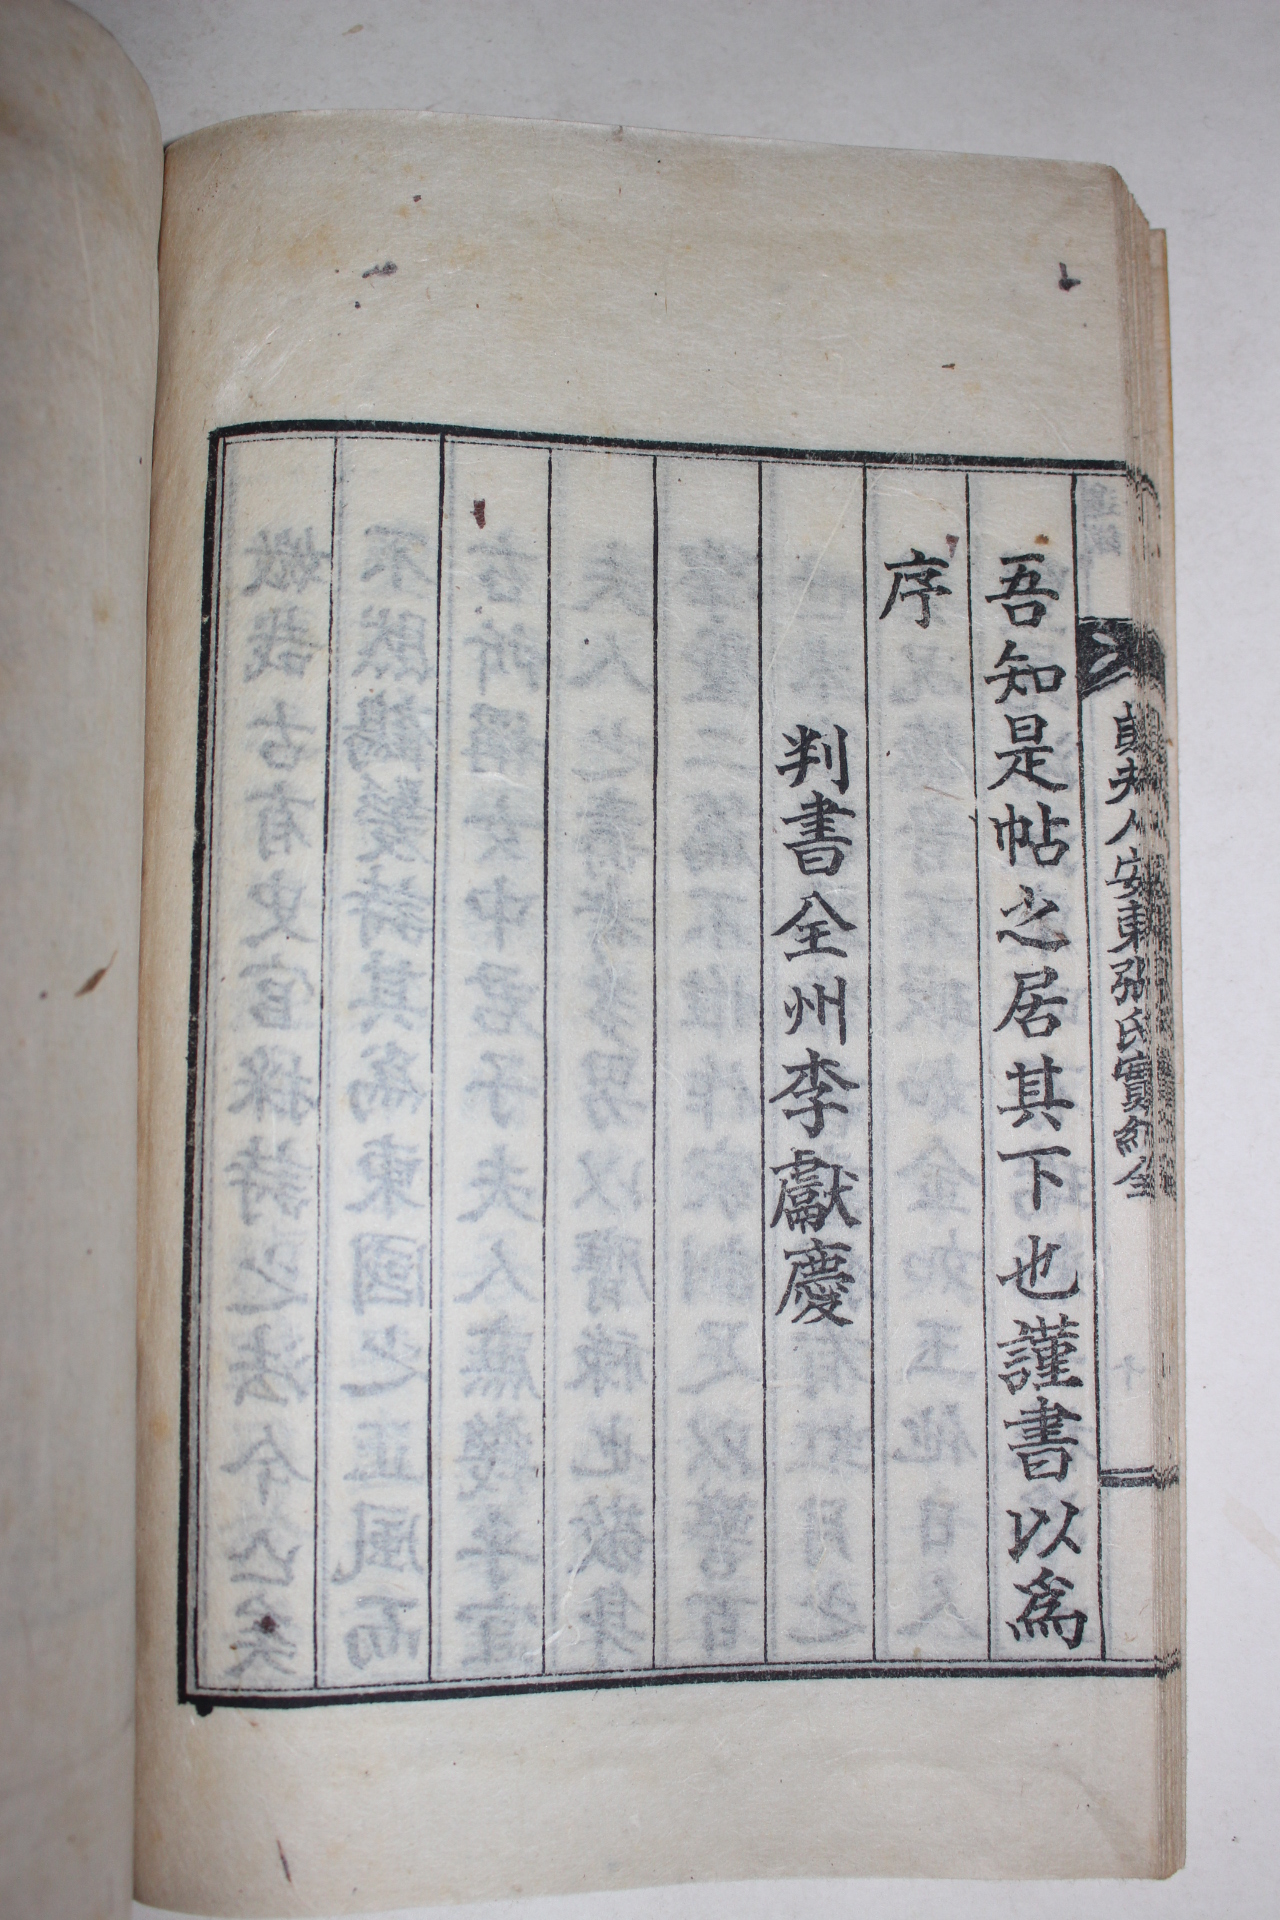 貞夫人安東張氏實紀全
吾知是帖之居其下也謹書以爲
序
判書全州李獻慶